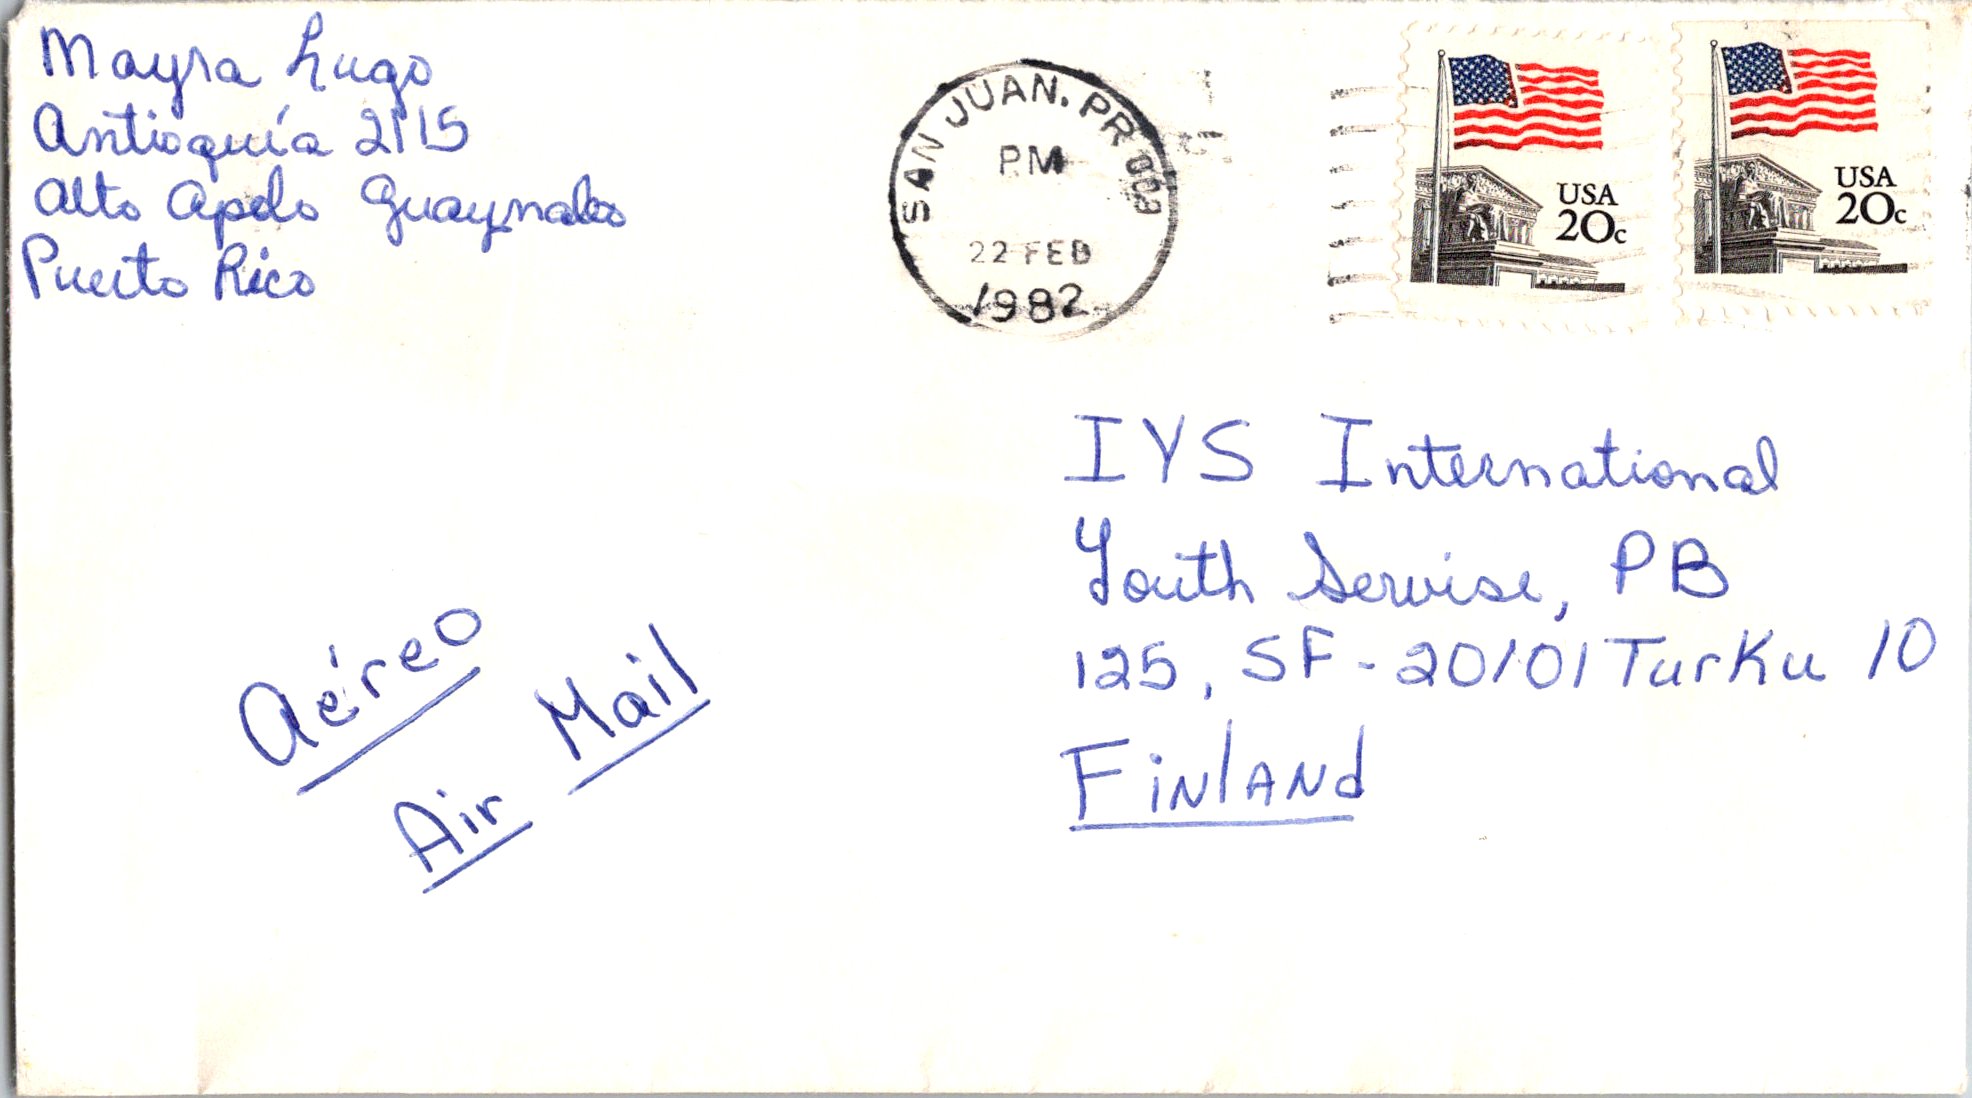 Mayra Lugo
Antioquía 2115
Alto Apolo Guaynabo
Puerto Rico
SAN JUAN, PR 009
PM
22 FEB
1982
USA
20c
USA
20c
IYS International
Youth Servise, PB
125, SF-20101 Turku 10
Finland
Aéreo
Air Mail